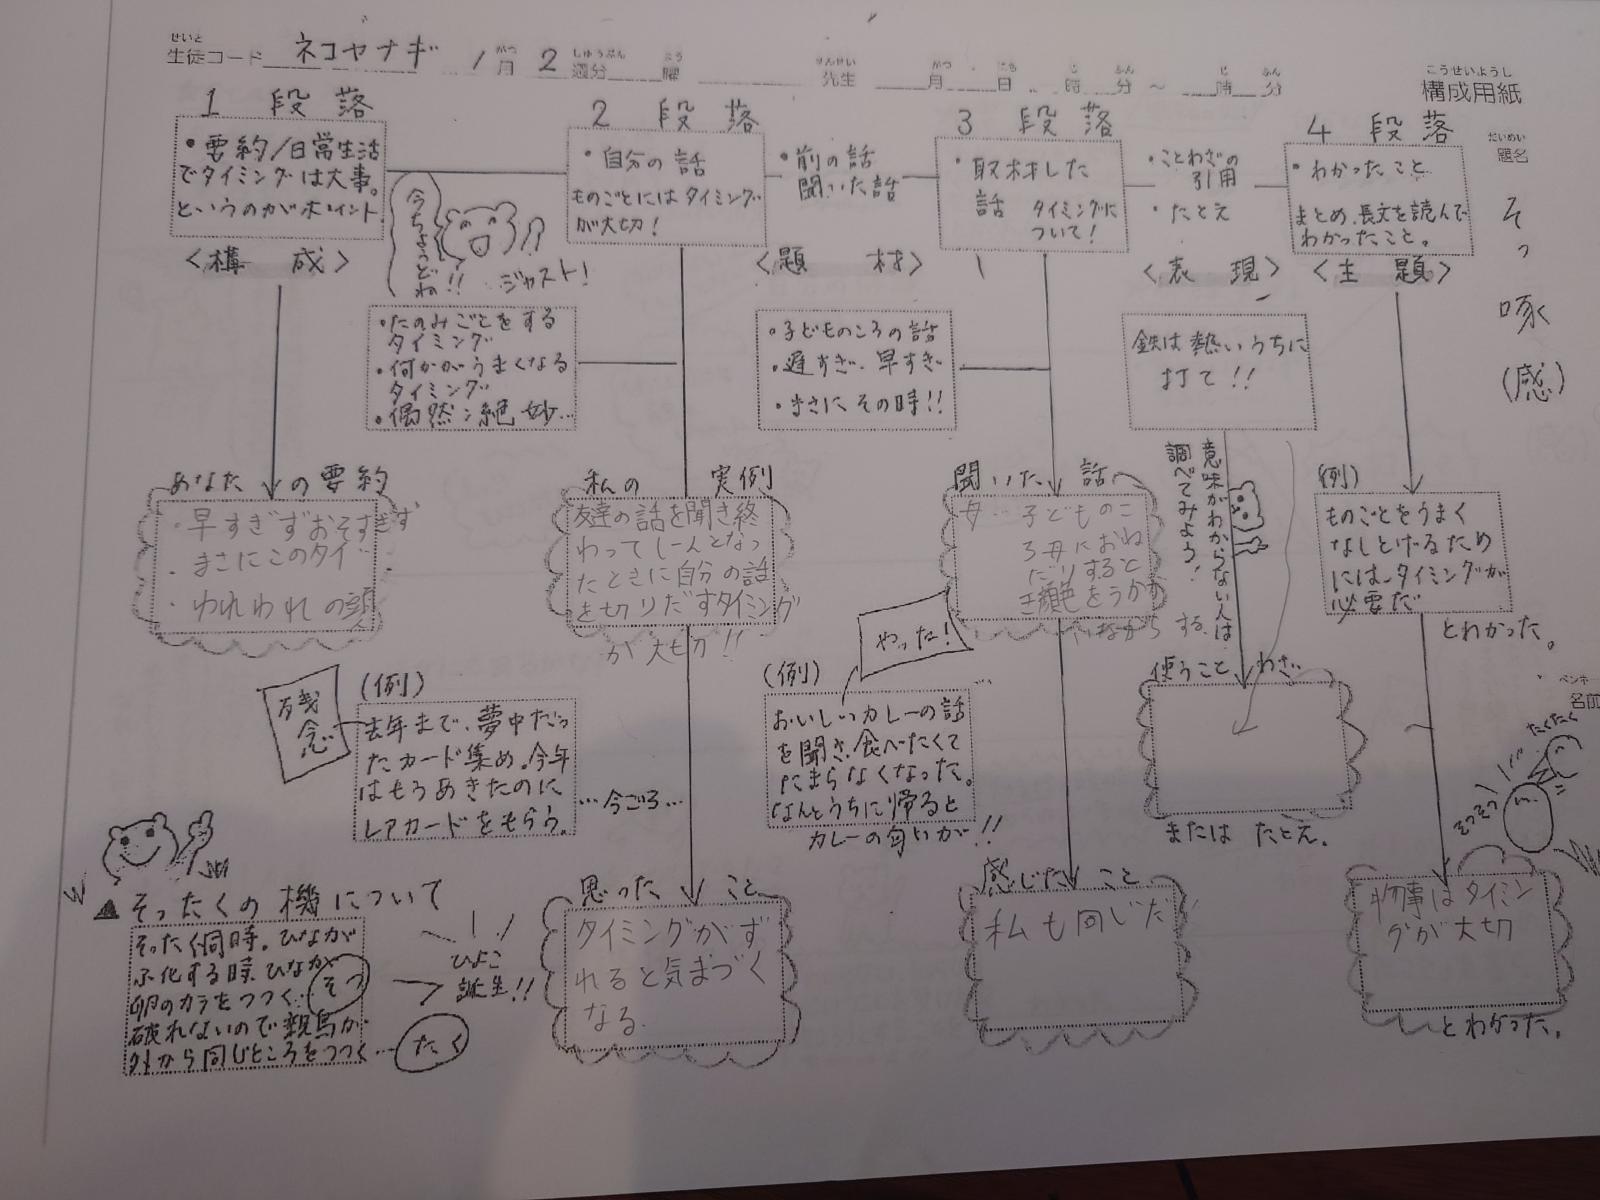 せいと
生徒コード ネコヤナギ 1月 2週分 曜 先生 月 日 時 分 ～ 時 分
がつ しゅうぶん よう せんせい がつ にち じ ふん じ ふん
こうせいようし
構成用紙
だいめい
題名
そっ啄(感)
1段落
・要約/日常生活
でタイミングは大事。
というのがポイント.
<構成>
今ちょうどね!!
ジャスト!
2段落
・自分の話
ものごとにはタイミング
が大切!
・前の話
聞いた話
<題材>
3段落
・取材した
話 タイミングに
ついて!
・ことわざの
引用
・たとえ
<表現>
4段落
・わかったこと
まとめ、長文を読んで
わかったこと。
<主題>
・たのみごとをする
タイミング
・何かがうまくなる
タイミング
・偶然:絶妙…
・子どものころの話
・遅すぎ・早すぎ
・まさにその時!!
鉄は熱いうちに
打て!!
意味がわからない人は
調べてみよう!
あなたの要約
・早すぎずおそすぎず
・まさにこのタイ…
・われわれの頭
私の実例
友達の話を聞き終
わってしーんとなっ
たときに自分の話
を切りだすタイミング
が大切!!
聞いた話
母…子どものこ
ろ母におね
だりすると
き顔色をうかが
いながらする.
(例)
ものごとをうまく
なしとげるため
には、タイミングが
必要だ
とわかった。
残念
(例)
去年まで、夢中だっ
たカード集め。今年
はもうあきたのに
レアカードをもらう。
…今ごろ…
やった!
(例)
おいしいカレーの話
を聞き、食べたくて
たまらなくなった。
なんとうちに帰ると
カレーの匂いが!!
使うことわざ
または たとえ.
ペンネーム
名前
たくたく
そつそつ
▲そったくの機について
そったく同時。ひなが
ふ化する時、ひなが
卵のカラをつつく…そつ
破れないので親鳥が
外から同じところをつつく…たく
ひよこ
誕生!!
思ったこと
タイミングがず
れると気まづく
なる.
感じたこと
私も同じだ
物事はタイミン
グが大切
とわかった.